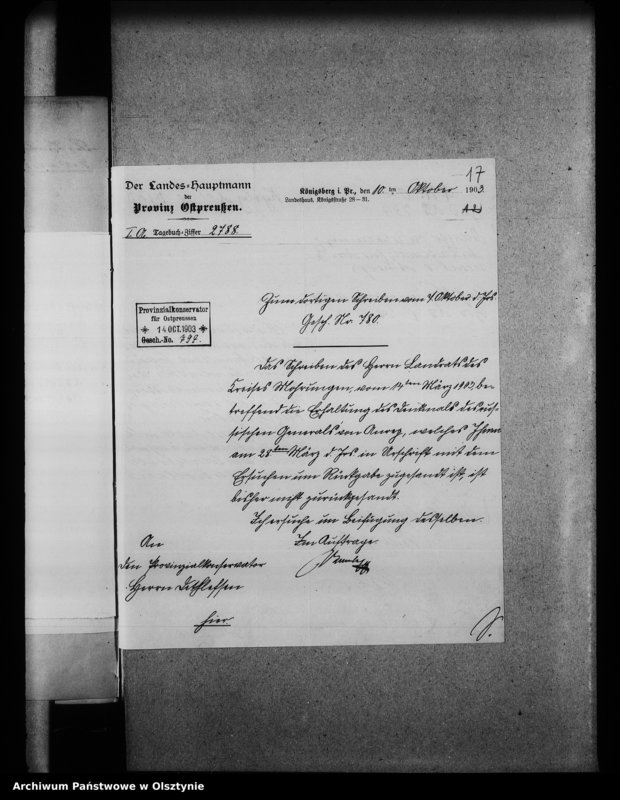 17
Der Landes-Hauptmann
der
Provinz Ostpreußen.
I A Tagebuch-Ziffer 2788.
Königsberg i. Pr., den 10 ten Oktober 1903.
Landeshaus, Königstraße 28–31.
Provinzialkonservator
für Ostpreussen
14 OCT. 1903
Gesch.-No. 797.
Zum dortigen Schreiben vom 7. Oktober d. Jrs
Gesch. Nr. 780.
Das Schreiben des Herrn Landrats des
Kreises Mohrungen, vom 17ten März 1902, be-
treffend die Erhaltung des Denkmals des rus-
sischen Generals von Anrep, welches Ihnen
am 28ten März d. Jrs in Urschrift mit dem
Ersuchen um Rückgabe zugesandt ist, ist
bisher nicht zurückgesandt.
Ich ersuche um Beifügung desselben.
Im Auftrage
An
den Provinzialkonservator
Herrn Dethlefsen
hier
Archiwum Państwowe w Olsztynie